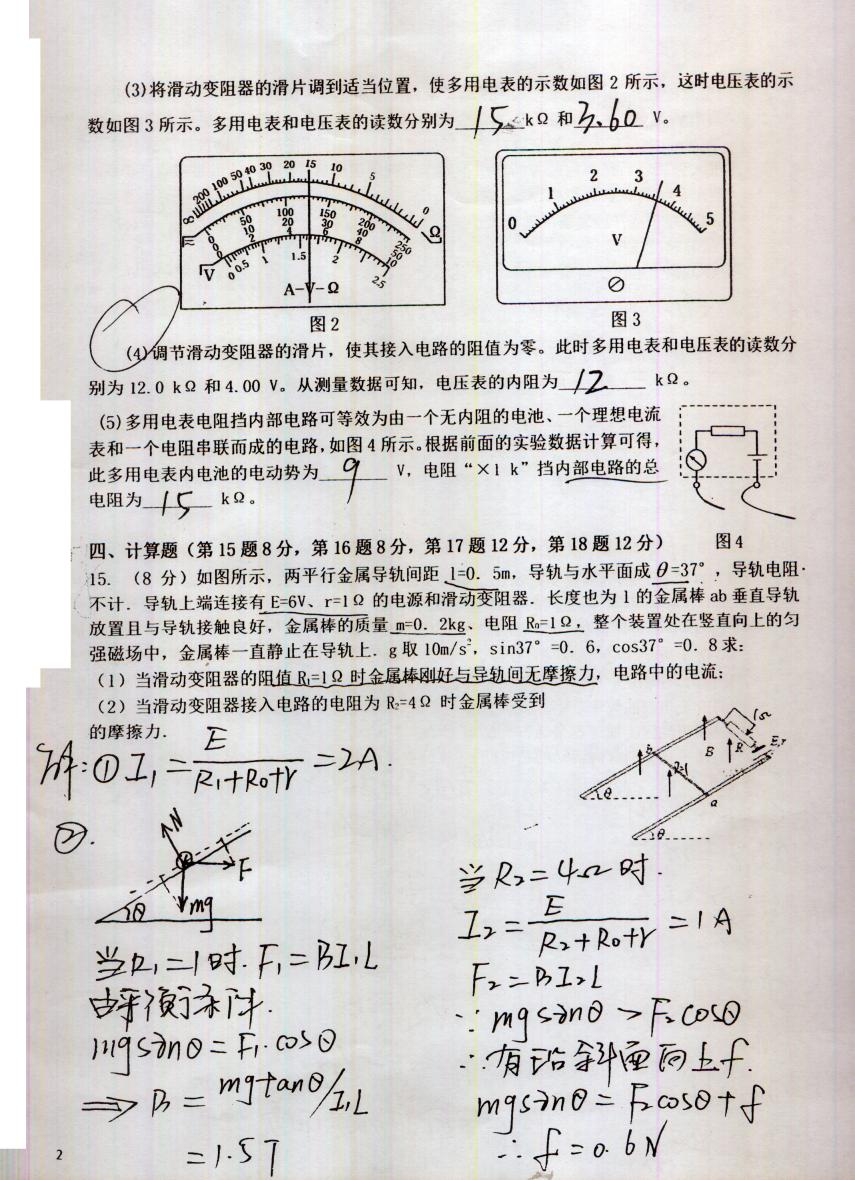 (3)将滑动变阻器的滑片调到适当位置，使多用电表的示数如图 2 所示，这时电压表的示
数如图 3 所示。多用电表和电压表的读数分别为 15 kΩ 和 3.60 V。
∞ 200 100 50 40 30 20 15 10 5 0 Ω
0 50 100 150 200 250
0 10 20 30 40 50
0 2 4 6 8 10
V 0 0.5 1 1.5 2 2.5
A-V-Ω
0 1 2 3 4 5
V
图 2
图 3
(4)调节滑动变阻器的滑片，使其接入电路的阻值为零。此时多用电表和电压表的读数分
别为 12.0 kΩ 和 4.00 V。从测量数据可知，电压表的内阻为 12 kΩ。
(5)多用电表电阻挡内部电路可等效为由一个无内阻的电池、一个理想电流
表和一个电阻串联而成的电路,如图 4 所示。根据前面的实验数据计算可得，
此多用电表内电池的电动势为 9 V，电阻“×1 k”挡内部电路的总
电阻为 15 kΩ。
图 4
四、计算题（第 15 题 8 分，第 16 题 8 分，第 17 题 12 分，第 18 题 12 分）
15. （8 分）如图所示，两平行金属导轨间距 l=0．5m，导轨与水平面成 θ=37°，导轨电阻
不计．导轨上端连接有 E=6V、r=1Ω 的电源和滑动变阻器．长度也为 l 的金属棒 ab 垂直导轨
放置且与导轨接触良好，金属棒的质量 m=0．2kg、电阻 R₀=1Ω，整个装置处在竖直向上的匀
强磁场中，金属棒一直静止在导轨上．g 取 10m/s²，sin37°=0．6，cos37°=0．8 求：
（1）当滑动变阻器的阻值 R₁=1Ω 时金属棒刚好与导轨间无摩擦力，电路中的电流；
（2）当滑动变阻器接入电路的电阻为 R₂=4Ω 时金属棒受到
的摩擦力．
1Ω
b B R E,r
a
θ
θ
解:① I₁ = E/(R₁+R₀+r) =2A.
②.
N
F
mg
θ
当R₁=1时. F₁=BI₁L
由平衡条件.
mgsinθ = F₁·cosθ
⇒ B = mgtanθ/I₁L
=1.5T
当 R₂=4Ω时.
I₂ = E/(R₂+R₀+r) =1A
F₂=BI₂L
∵ mgsinθ > F₂cosθ
∴ 有沿斜面向上f.
mgsinθ = F₂cosθ+f
∴ f=0.6N
2